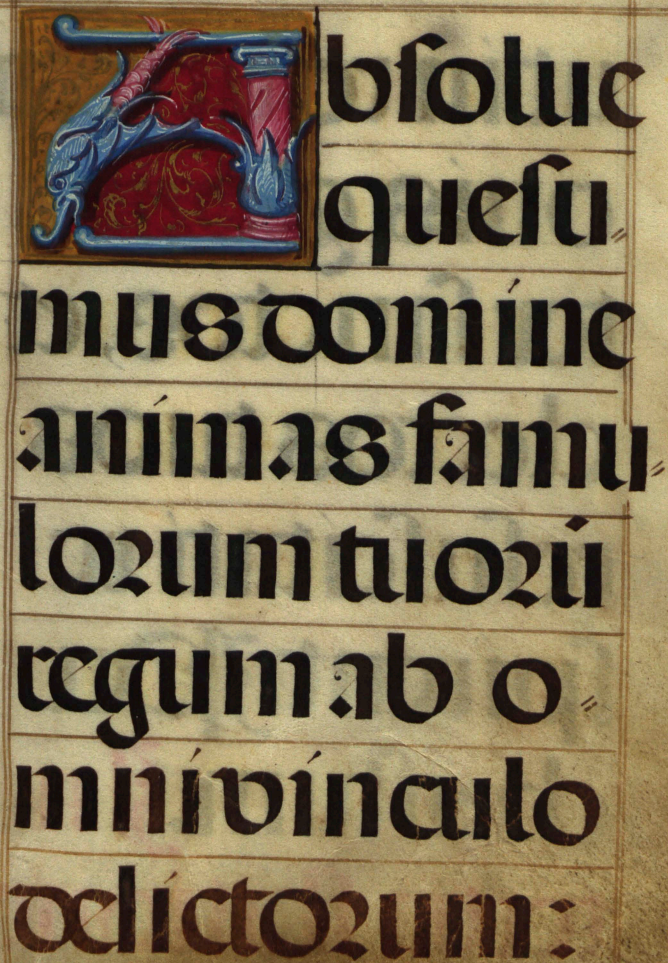 Abſolue
queſu〃
mus domine
animas famu〃
lorum tuorū
regum ab o〃
mni vinculo
delictorum: